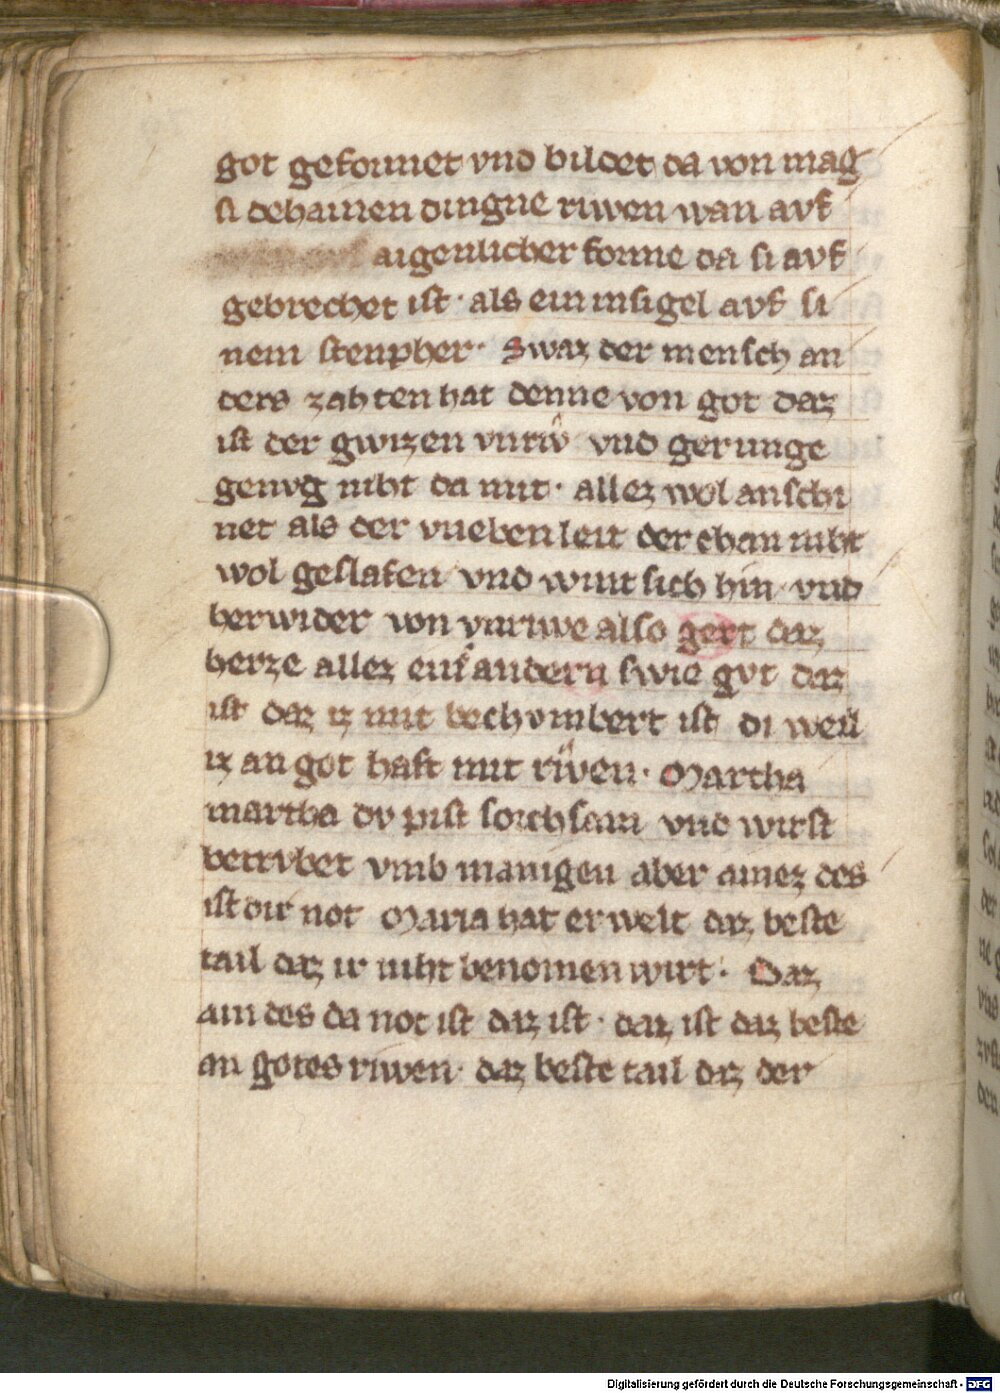 got geformet vnd bildet da von mag
si dehainen dingne riwen wan avf
aigenlicher forme da si avf
gebrechet ist · als ein insigel avf si
nem stenpher · Swaz der mensch an
ders zahten hat denne von got daz
ist der gwizen vnriw vnd gerunge
genvg niht da mit · allez wol anschi
net als der vnebenleit der chan niht
wol geslafen vnd wint sich hin vnd
herwider von vnriwe also gert daz
herze allez ein andern swie gvt daz
ist daz iz mit bechvmbert ist di weil
iz an got haft mit riwen · Martha
martha dv pist sorchsam vnd wirst
betrvbet vmb manigen aber ainez des
ist dir not Maria hat erwelt daz beste
tail daz ir niht benomen wirt · Daz
ain des da not ist daz ist · daz ist daz beste
an gotes riwen · daz beste tail daz der
Digitalisierung gefördert durch die Deutsche Forschungsgemeinschaft - DFG